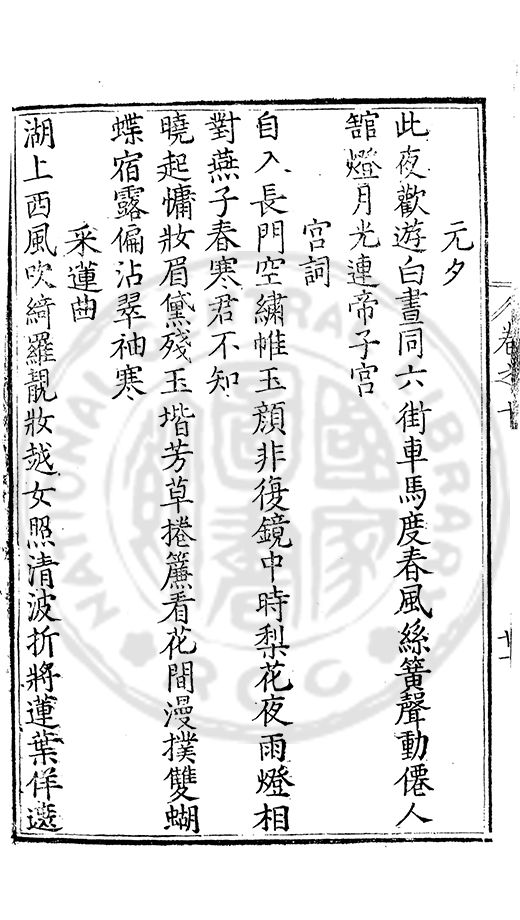 元夕
此夜歡遊白晝同六街車馬度春風絲簧聲動僊人
館燈月光連帝子宮
宮詞
自入長門空繡帷玉顔非復鏡中時梨花夜雨燈相
對燕子春寒君不知
曉起慵妝眉黛殘玉堦芳草捲簾看花間漫撲雙蝴
蝶宿露偏沾翠袖寒
采蓮曲
湖上西風吹綺羅靚妝越女照清波折將蓮葉佯遮
卷之十
NATIONAL CENTRAL LIBRARY
ROC